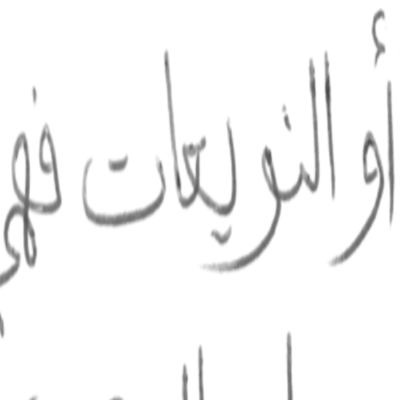 أو التنويعات فهي